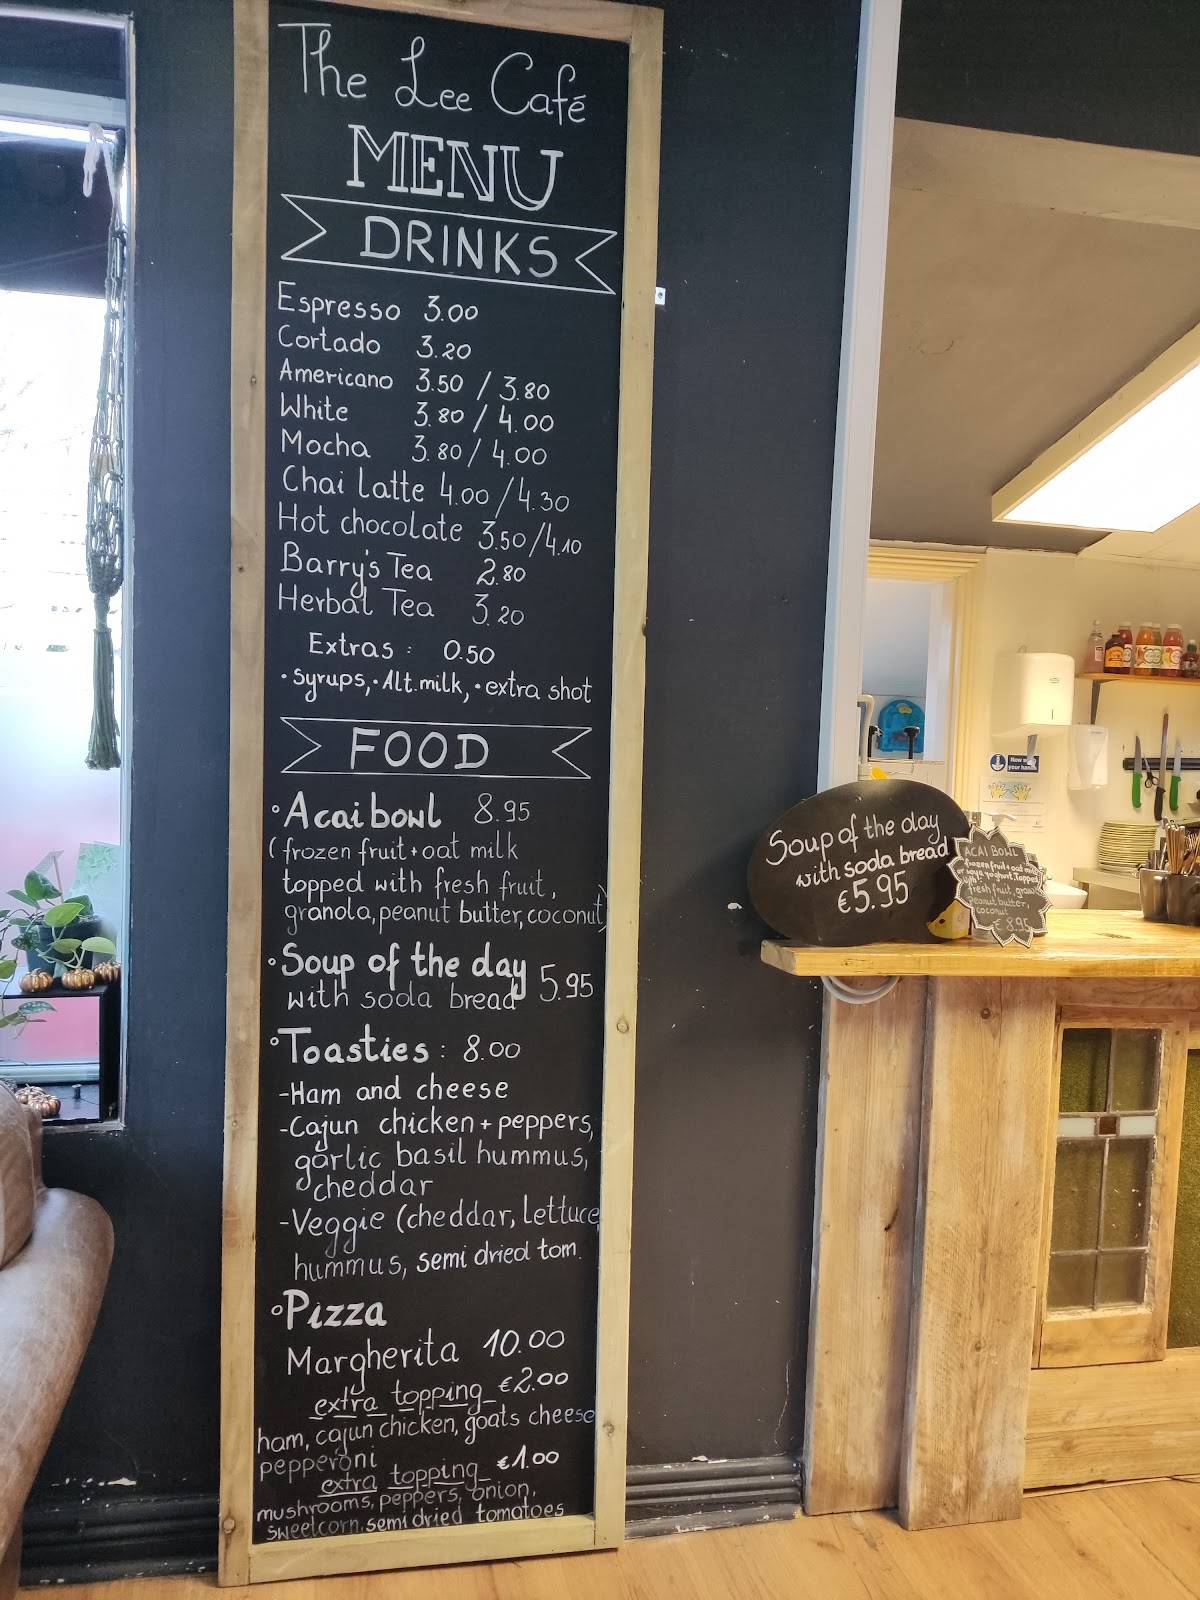 The Lee Café
MENU
DRINKS
Espresso 3.00
Cortado 3.20
Americano 3.50 / 3.80
White 3.80 / 4.00
Mocha 3.80 / 4.00
Chai Latte 4.00 / 4.30
Hot chocolate 3.50/4.10
Barry's Tea 2.80
Herbal Tea 3.20
Extras : 0.50
·syrups,·Alt.milk,·extra shot
FOOD
°Acai bowl 8.95
(frozen fruit+oat milk
topped with fresh fruit,
granola, peanut butter, coconut)
°Soup of the day 5.95
with soda bread
°Toasties: 8.00
-Ham and cheese
-Cajun chicken + peppers,
garlic basil hummus,
cheddar
-Veggie (cheddar, lettuce
hummus, semi dried tom.
°Pizza
Margherita 10.00
extra topping €2.00
ham, cajun chicken, goats cheese
pepperoni
extra topping €1.00
mushrooms, peppers, onion,
sweetcorn, semi dried tomatoes
Soup of the day
with soda bread
€5.95
ACAI BOWL
frozen fruit+oat milk
or soya yoghurt. Topped
with
fresh fruit,
peanut butter,
coconut
€ 8.95
Now
your hands